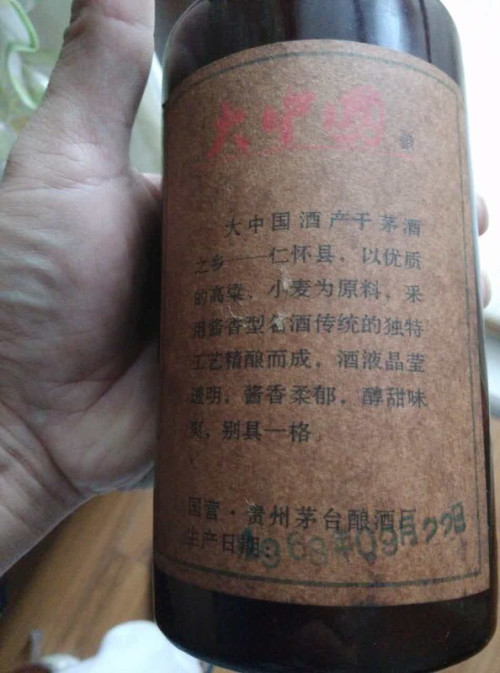 大中国
大中国酒产于茅酒
之乡——仁怀县，以优质
的高粱、小麦为原料，采
用酱香型名酒传统的独特
工艺精酿而成，酒液晶莹
透明，酱香柔郁，醇甜味
爽，别具一格
国营·贵州茅台酿酒厂
生产日期：1968年09月27日